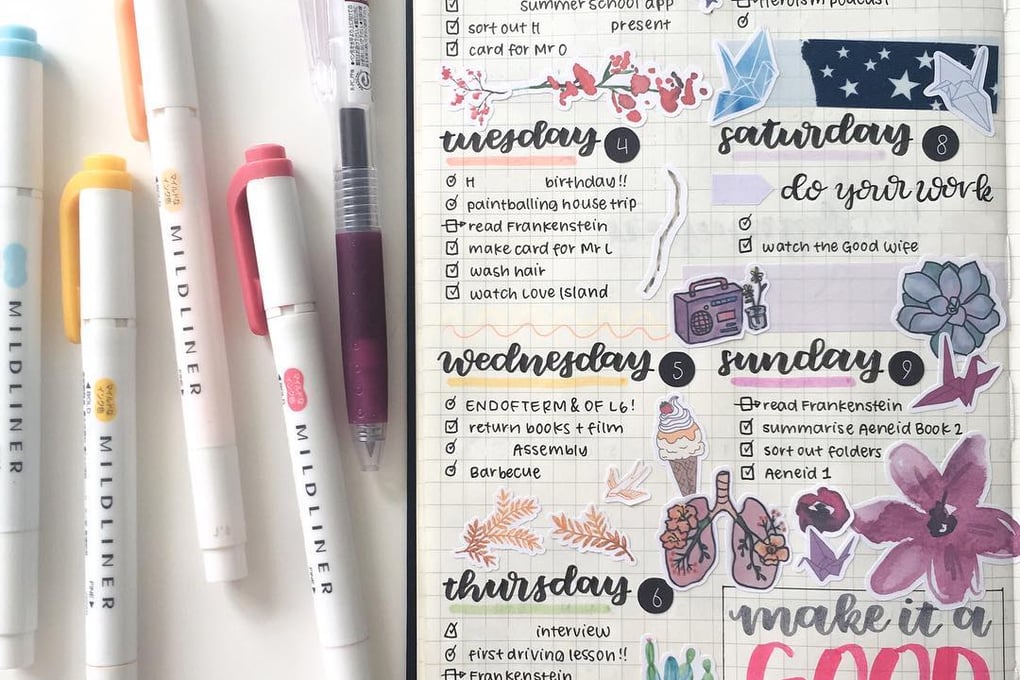 MILDLINER
MILDLINER
MILDLINER
MILDLINER
マイルドなインク色
マイルドなインク色
マイルドなインク色
BOLD
FINE
summer school app
sort out H present
card for Mr O
tuesday 4
H birthday!!
paintballing house trip
read Frankenstein
make card for Mr L
wash hair
watch Love Island
wednesday 5
END OF TERM & OF L6!
return books + film
Assembly
Barbecue
thursday 6
interview
first driving lesson!!
Frankenstein
Heroism podcast
saturday 8
do your work
watch the Good Wife
sunday 9
read Frankenstein
summarise Aeneid Book 2
sort out folders
Aeneid 1
make it a
GOOD